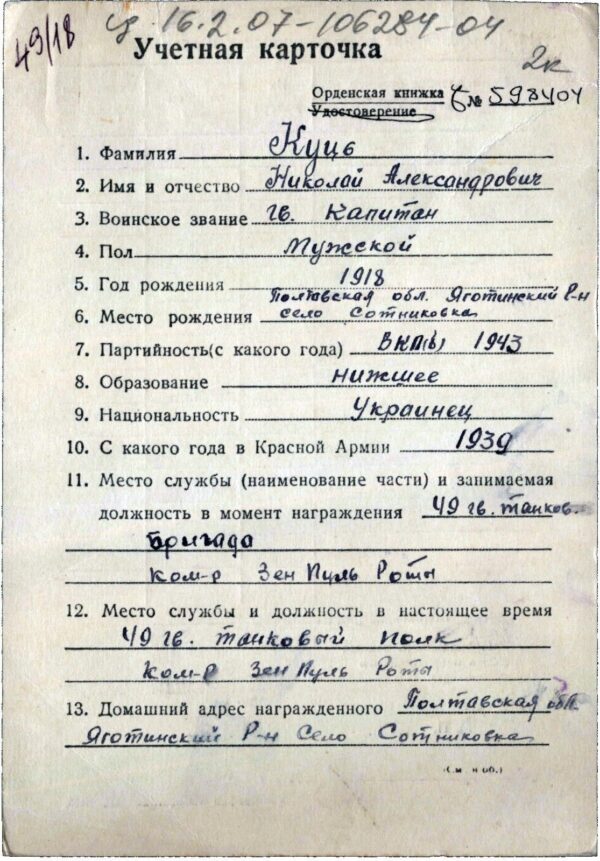 49/18 ц. 16.2.07-106284-04
Учетная карточка
2к
Орденская книжка
Удостоверение Б № 598404
1. Фамилия Куць
2. Имя и отчество Николай Александрович
3. Воинское звание гв. Капитан
4. Пол Мужской
5. Год рождения 1918
Полтавская обл. Яготинский Р-н
6. Место рождения село Сотниковка
7. Партийность(с какого года) ВКП(б) 1943
8. Образование низшее
9. Национальность Украинец
10. С какого года в Красной Армии 1939
11. Место службы (наименование части) и занимаемая
должность в момент награждения 49 гв. танков.
бригада
ком-р Зен Пуль Роты
12. Место службы и должность в настоящее время
49 гв. танковый полк
ком-р Зен Пуль Роты
13. Домашний адрес награжденного Полтавская обл.
Яготинский Р-н Село Сотниковка
(см. н об.)